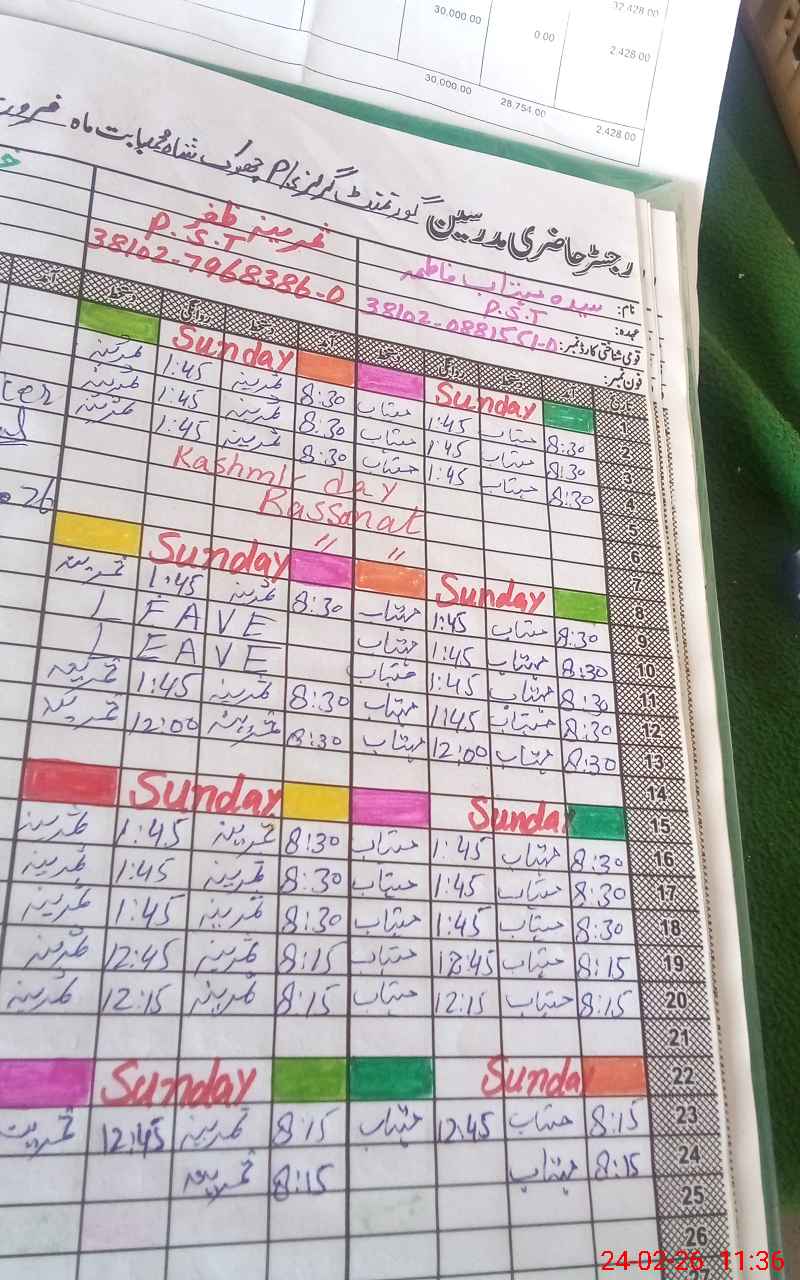 32.428.00
30,000.00 0.00 2.428.00
30,000.00 28,754.00 2,428.00
رجسٹر حاضری مدرسین گورنمنٹ گرلز P/S چھوک شاہ بابت ماہ
نام: سیدہ مہتاب فاطمہ ثمرینہ ظفر
عہدہ: P.S.T P.S.T
قومی شناختی کارڈ نمبر: 38102-0881551-0 38102-7968386-0
فون نمبر:
تاریخ آمد دستخط روانگی دستخط آمد دستخط روانگی دستخط
1 Sunday Sunday
2 8:30 مہتاب 1:45 مہتاب 8:30 ثمرینہ 1:45 ثمرینہ
3 8:30 مہتاب 1:45 مہتاب 8:30 ثمرینہ 1:45 ثمرینہ
4 8:30 مہتاب 1:45 مہتاب 8:30 ثمرینہ 1:45 ثمرینہ
5 Kashmir day
6 Bassanat
7 " "
8 Sunday Sunday
9 8:30 مہتاب 1:45 مہتاب 8:30 ثمرینہ 1:45 ثمرینہ
10 8:30 مہتاب 1:45 مہتاب L E A V E
11 8:30 مہتاب 1:45 مہتاب L E A V E
12 8:30 مہتاب 1:45 مہتاب 8:30 ثمرینہ 1:45 ثمرینہ
13 8:30 مہتاب 12:00 مہتاب 8:30 ثمرینہ 12:00 ثمرینہ
14
15 Sunday Sunday
16 8:30 مہتاب 1:45 مہتاب 8:30 ثمرینہ 1:45 ثمرینہ
17 8:30 مہتاب 1:45 مہتاب 8:30 ثمرینہ 1:45 ثمرینہ
18 8:30 مہتاب 1:45 مہتاب 8:30 ثمرینہ 1:45 ثمرینہ
19 8:15 مہتاب 12:45 مہتاب 8:15 ثمرینہ 12:45 ثمرینہ
20 8:15 مہتاب 12:15 مہتاب 8:15 ثمرینہ 12:15 ثمرینہ
21
22 Sunday Sunday
23 8:15 مہتاب 12:45 مہتاب 8:15 ثمرینہ 12:45 ثمرینہ
24 8:15 مہتاب 8:15 ثمرینہ
25
26
27
24-02-26 11:36